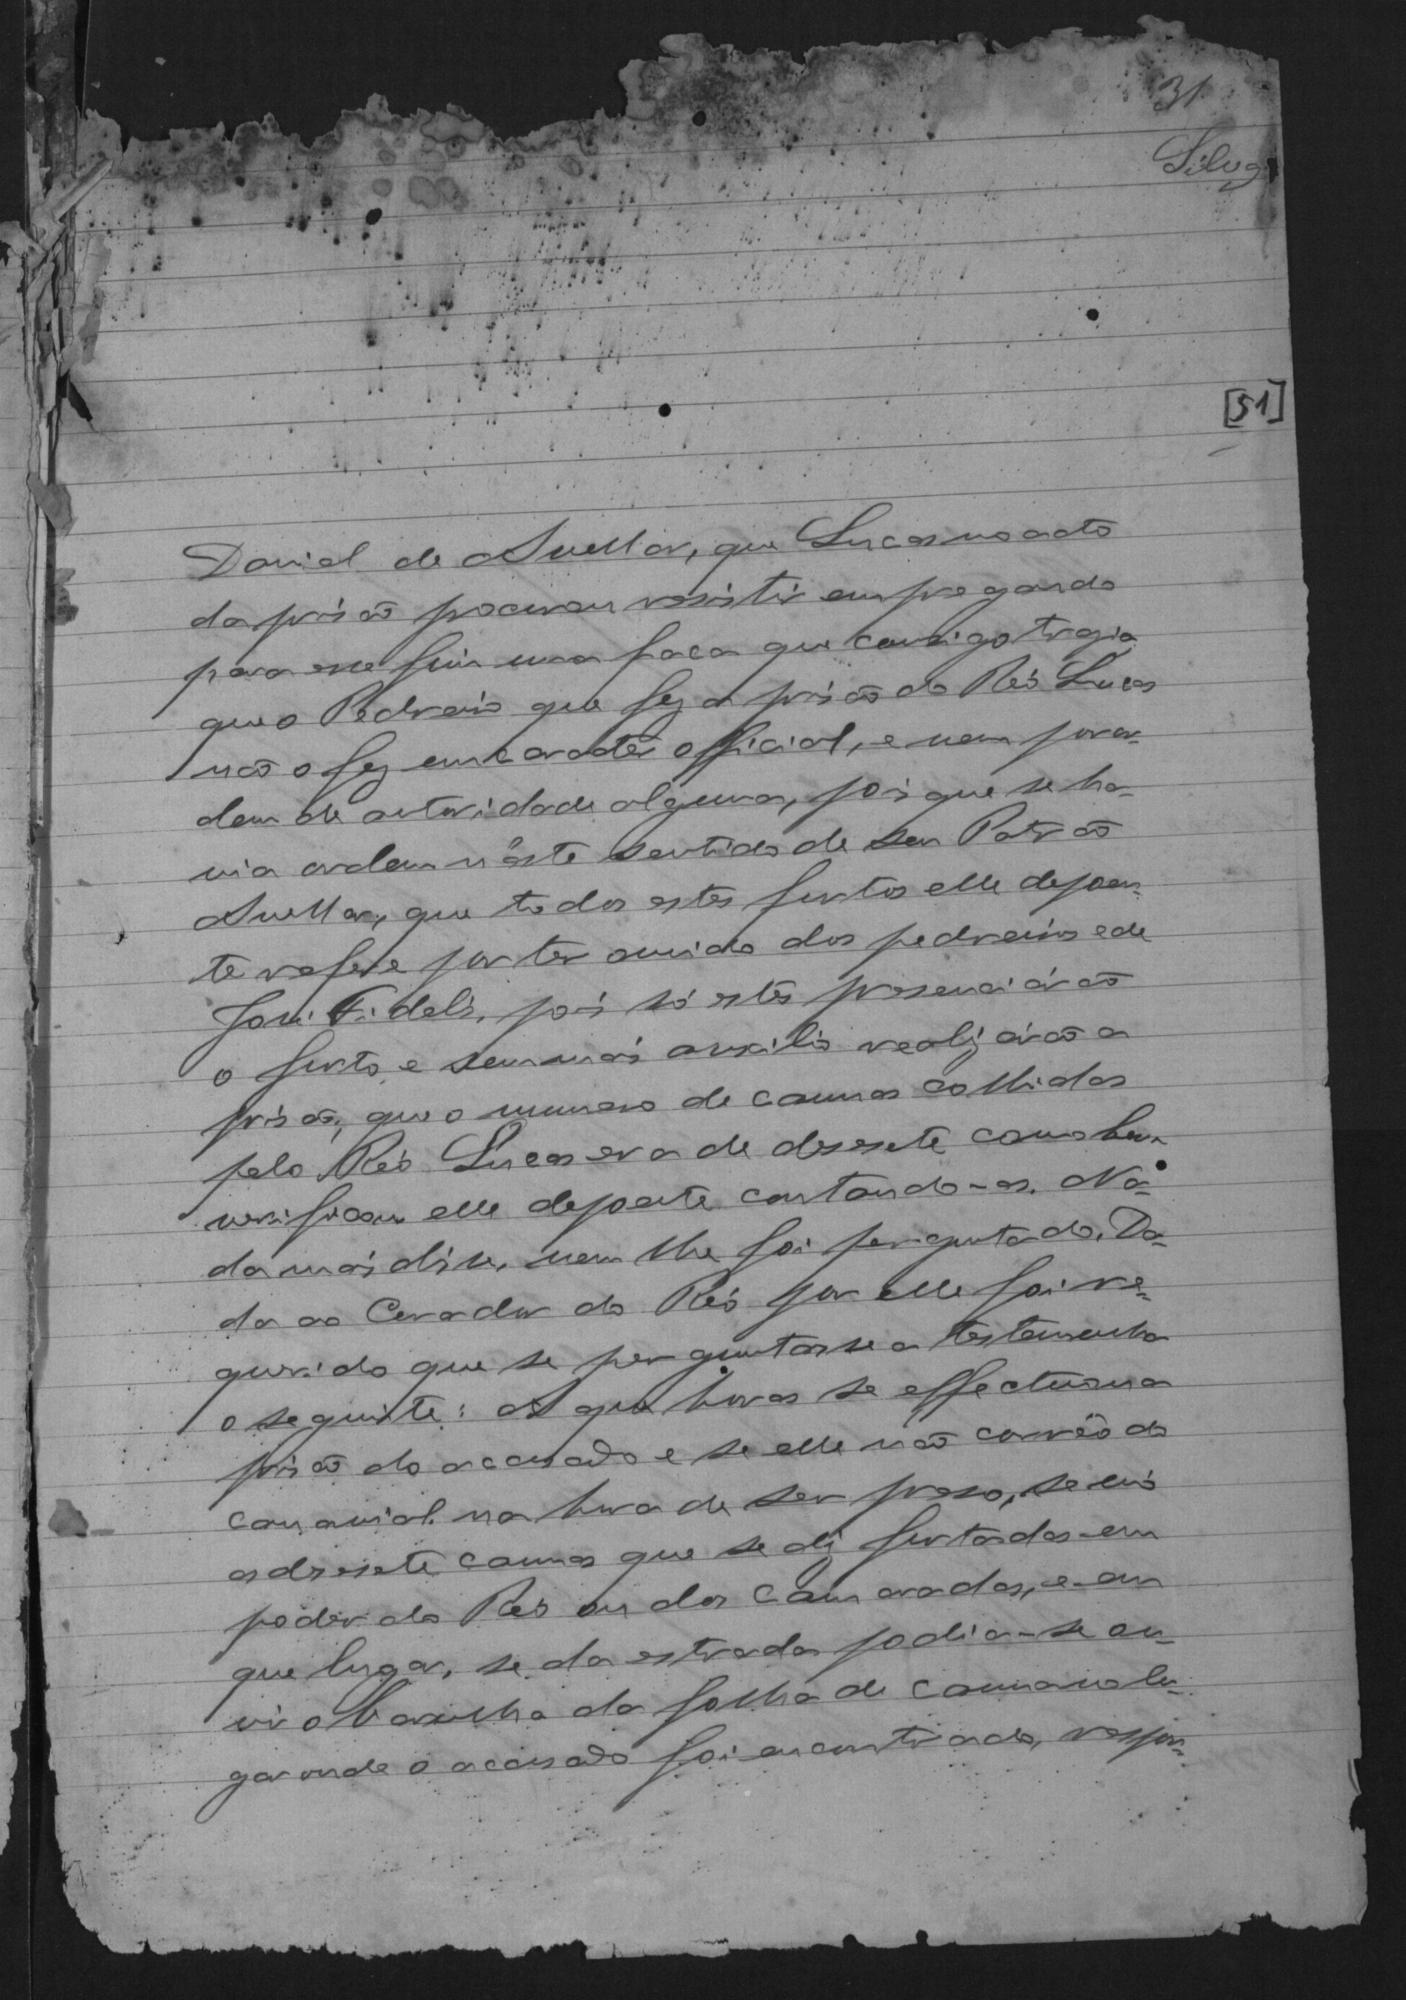 31
Silva
[51]
David de Avellar, que Lucas no acto
da prisão procurou resistir empregando
para esse fim uma faca que comsigo trazia
que o Pedreiro que fez a prisão do Réo Lucas
não o fez em caracter official, e nem por or-
dem de autoridade alguma, pois que se ha-
via ordem n'este sentido de seu Patrão
Avellar, que todos estes furtos elle depoen-
te refere por ter ouvido dos pedreiros e de
José Fidelis, pois só estes presenciárão
o furto, e sem mais auxilio realizárão a
prisão, que o numero de cannas colhidas
pelo Réo Lucas era de desesete como bem
verificou elle depoente contando-as. Na-
da mais disse, nem lhe foi perguntado. Da-
da ao Curador do Réo por elle foi re-
querido que se perguntasse a testemunha
o seguinte: A que horas se effectuou a
prisão do accusado e se elle não corrêo do
canavial na hora de ser preso, se vio
as desesete cannas que se diz furtadas em
poder do Réo ou dos camaradas, e em
que lugar, se da estrada podia-se ou-
vir o barulho da folha de canna no lu-
gar onde o accusado foi encontrado, respon-